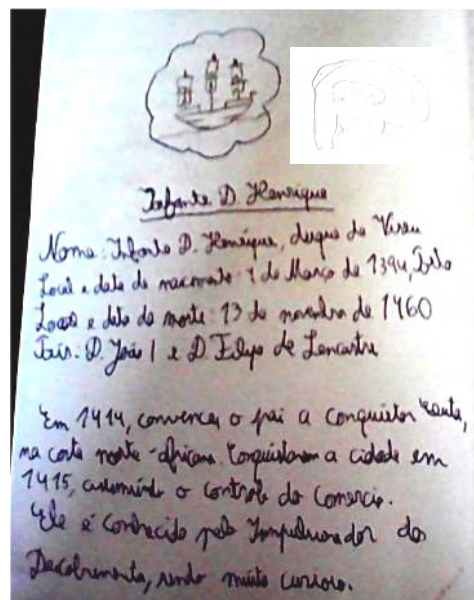 Infante D. Henrique
Nome: Infante D. Henrique, duque de Viseu
Local e data de nascimento: 4 de Março de 1394, Porto
Local e data de morte: 13 de novembro de 1460
Pais: D. João I e D. Filipa de Lencastre
Em 1414, convenceu o pai a conquistar Ceuta,
na costa norte-africana. Conquistaram a cidade em
1415, assumindo o controlo do Comercio.
Ele é conhecido pelo Impulsionador dos
Descobrimentos, sendo muito curioso.